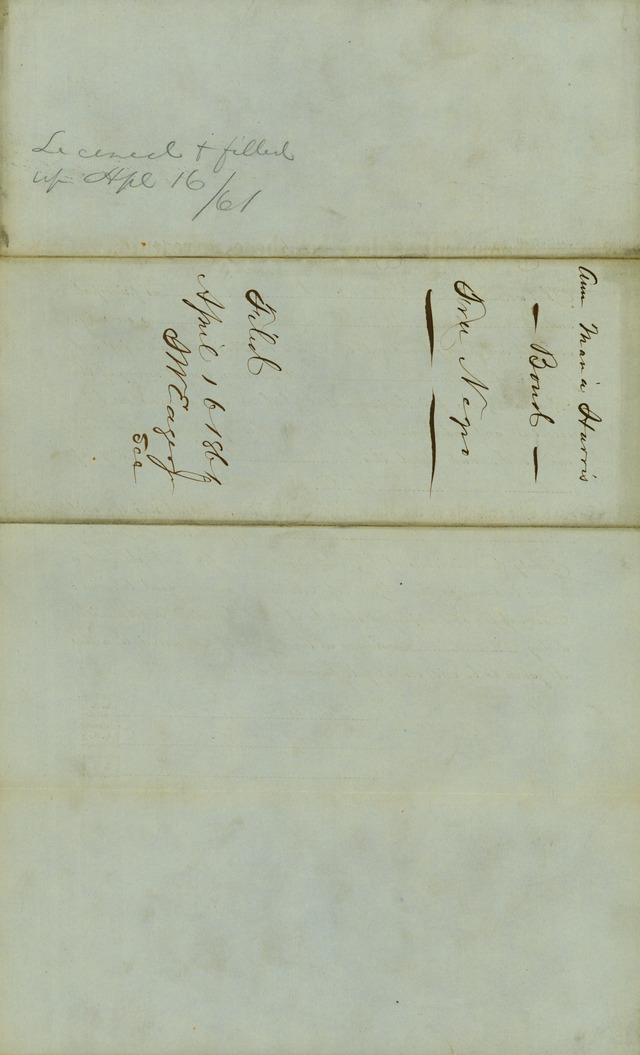 Licensed & filled
up Apl 16
/61
Ann Maria Harris
— Bond —
Free Negro
Filed
April 16 1861